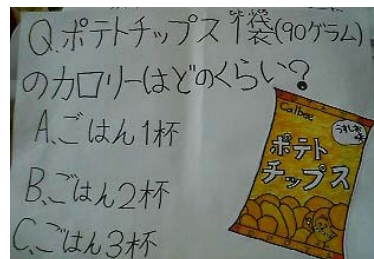 Q.ポテトチップス1袋(90グラム)
のカロリーはどのくらい?
A、ごはん1杯
B、ごはん2杯
C、ごはん3杯
Calbee
うすしお味
ポテト
チップス